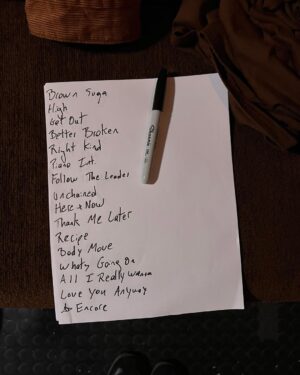 Brown Suga
High
Get Out
Better Broken
Right Kind
Piano Int.
Follow The Leader
Unchained
Here + Now
Thank Me Later
Recipe
Body Move
Whats Going On
All I Really Wanna
Love You Anyway
Encore
Sharpie